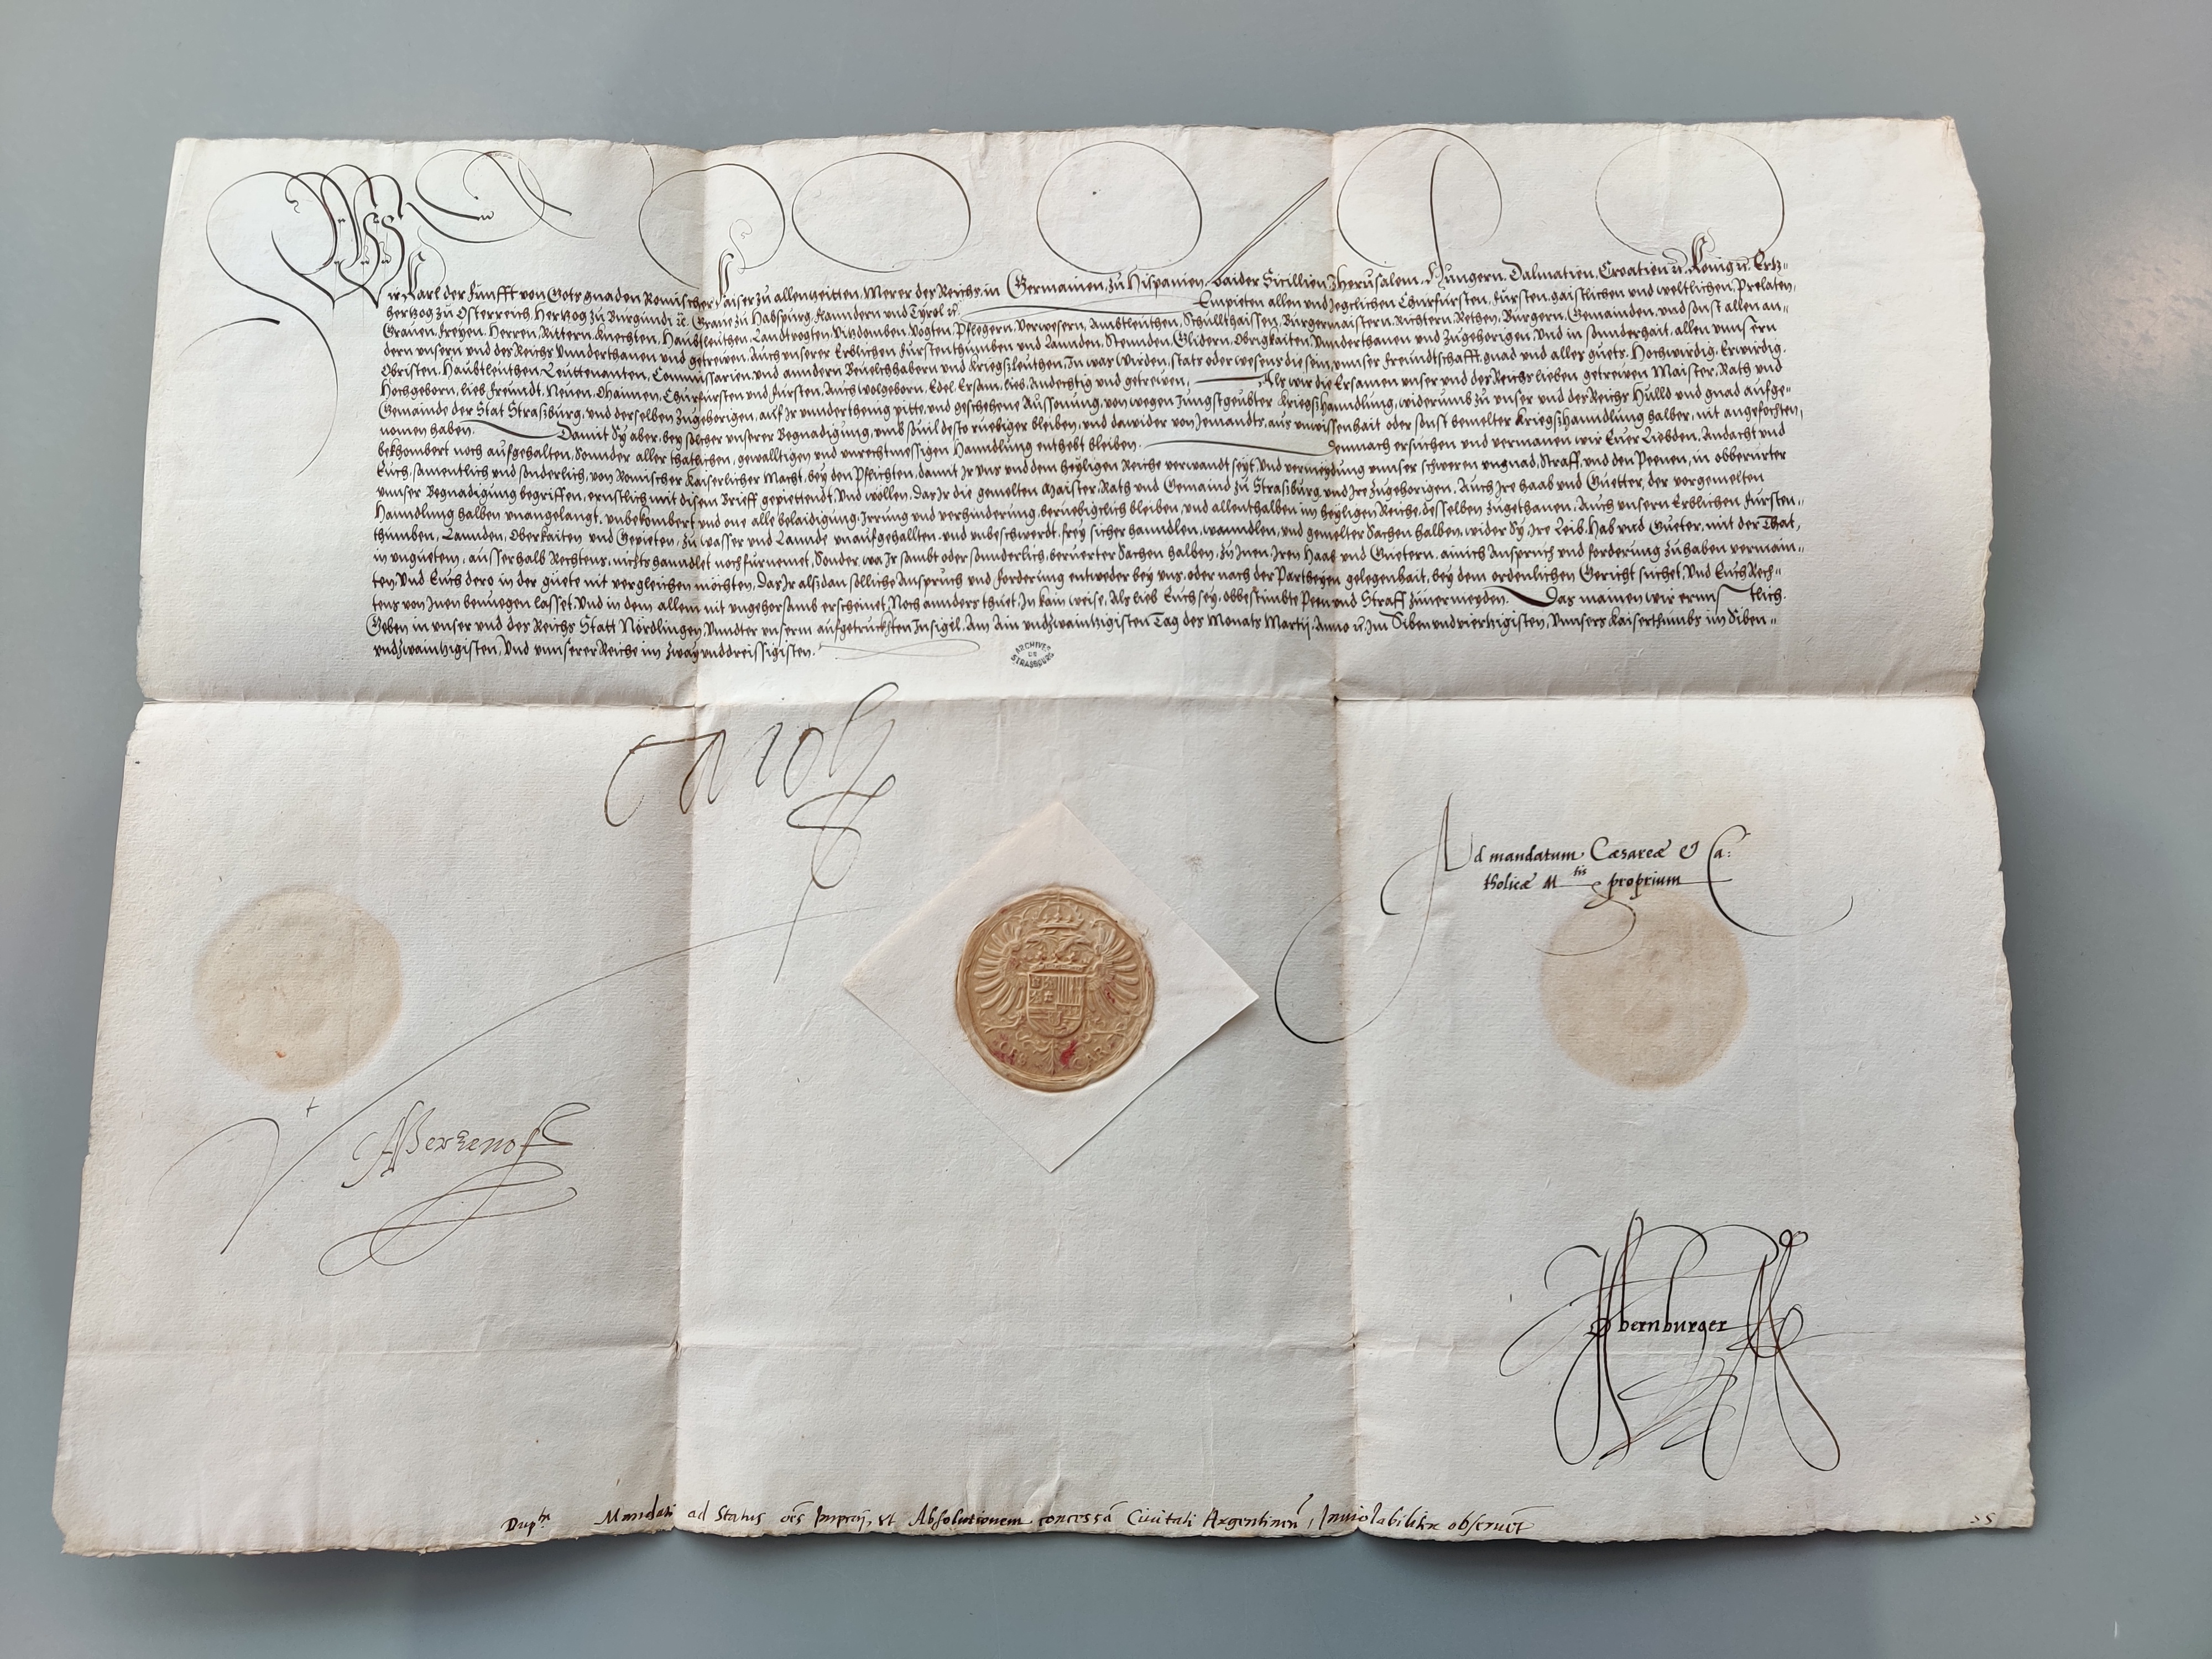 Wir Karl der Funfft von Gots gnaden Romischer Kaiser zu allen zeitten Merer des Reichs, in Germanien, zu Hispanien, baider Sicillien, Jherusalem, Hungern, Dalmatien, Croatien ꝛc. Konig ꝛc. Ertz-
hertzog zu Osterreich, Hertzog zu Burgundi ꝛc. Graue zu Habspurg, Flanndern vnd Tyrol ꝛc. Empieten allen vnd jegclichen Churfursten, Fursten, gaistlichen vnd weltlichen, Prelaten,
Grauen, Freyen, Herren, Rittern, Knechten, Haubtleuthen, Landtvogten, Vitzdomben, Vogten, Pflegern, Verwesern, Ambtleuthen, Schullthaissen, Burgermaistern, Richtern, Rethen, Burgern, Gemainden, vnd sonst allen an-
dern vnsern vnd des Reichs Vnnderthanen vnd getreiven, Auch vnserer Erblichen Furstenthumben vnd Lannden, Stennden, Glidern, Obrigkaiten, Vnnderthanen vnd Zugehorigen, Vnd in sonnderhait, allen vnnsern
Obristen, Haubtleuthen, Leuttenanten, Commissarien, vnd anndern Beuelchhabern vnd kriegsleuthen, In was Wirden, stats oder wesens die sein, vnnser freundtschafft, gnad vnd alles guets. Hochwirdig, Erwirdig,
Hochgeborn, lieb freundt, Neuen, Ohaimen, Churfursten vnd Fursten, Auch wolgeborn, Edel, Ersam, lieb, Andechtig vnd getreiven, Als wir die Ersamen vnser vnd des Reichs lieben getreiven Maister, Rath vnd
Gemainde der Stat Straßburg, vnd derselben Zugehorigen, auf Ir vnnderthenig pitte, vnd geschehene Aussonung, von wegen Jungstgeubter kriegßhanndlung, widerumb zu vnser vnd des Reichs Hulld vnd gnad aufge-
nomen haben. Damit Sy aber, bey solcher vnserer Begnadigung, vmb souil desto ruebiger bleiben, vnd dawider von Jemandts, aus vnwissenhait oder sonst bemelter kriegßhanndlung halber, nit angefochten,
bekhombert noch aufgehalten, Sonnder aller thatlichen, gewalltigen vnd vnrechtmessigen Hanndlung enthebt bleiben. Demnach ersuchen vnd vermanen wir Euer Liebden, Andacht vnd
Euch, samentlich vnd sonderlich, von Romischer Kaiserlicher Macht, bey den Pflichten, damit Ir vns vnd dem heyligen Reiche verwandt seyt, Vnd vermeydung vnnser schweren vngnad, Straff, vnd den Peenen, in obberurter
vnnser Begnadigung begriffen, ernstlich mit disem Brieff gepiettendt, Vnd wollen, Das Ir die gemelten Maister, Rath vnd Gemaind zu Straßburg, vnd Ire zugehorigen, Auch Ire haab vnd Guetter, der vorgemelten
Hanndlung halben vnangelangt, vnbekombert vnd one alle belaidigung, Irrung vnd verhinderung, beruebigclich bleiben, vnd allenthalben im heyligen Reiche, desselben Zugethanen, Auch vnsern Erblichen Fursten-
thumben, Lannden, Oberkaiten vnd Gepieten, zu Wasser vnd Lannde vnaufgehallten, vnd vnbeschwerdt, frey sicher hanndlen, wanndlen, vnd gemelter Sachen halben, wider Sy, Ire Leib, Hab vnd Gueter, mit der That,
in vnguetem, ausserhalb Rechtens, nichts hanndlet noch furnemet, Sonder, wa Ir sambt oder sonnderlich, beruerter Sachen halben, zu Inen, Iren Haab vnd Guetern, ainich Anspruch vnd forderung zuhaben vermain-
ten, Vnd Euch dero in der guete nit vergleichen mochten, Das Ir alsdan solliche Anspruch vnd forderung entweder bey vns, oder nach der Partheyen gelegenhait, bey dem ordenlichen Gericht suchet, Vnd Euch Rech-
tens von Inen benuegen lasset, Vnd in dem allem nit vngehorsamb erscheinet, Noch annders thuet, In kain weise, Als lieb Euch sey, obbestimbte Peen vnd Straff zuuermeyden. Das mainen wir ernnstlich.
Geben in vnser vnd des Reichs Statt Nördlingen, Vnndter vnserm aufgetruckhten Insigel, Am Ain vndzwaintzigisten Tag des Monats Martij, Anno ꝛc. Im Sibenvndviertzigisten, Vnnsers Kaiserthumbs im Siben-
vndzwaintzigisten, Vnd vnnserer Reiche im Zwayvnddreissigisten.
ARCHIVES
DE
STRASBOURG
Carolus
Ad mandatum Cæsareæ & Ca:
tholicæ M tis proprium
Obernburger
Mandati ad Status oēs Imperij, vt Absolutionem concessā Ciuitati Argentinen, Inuiolabiliter obseruēt